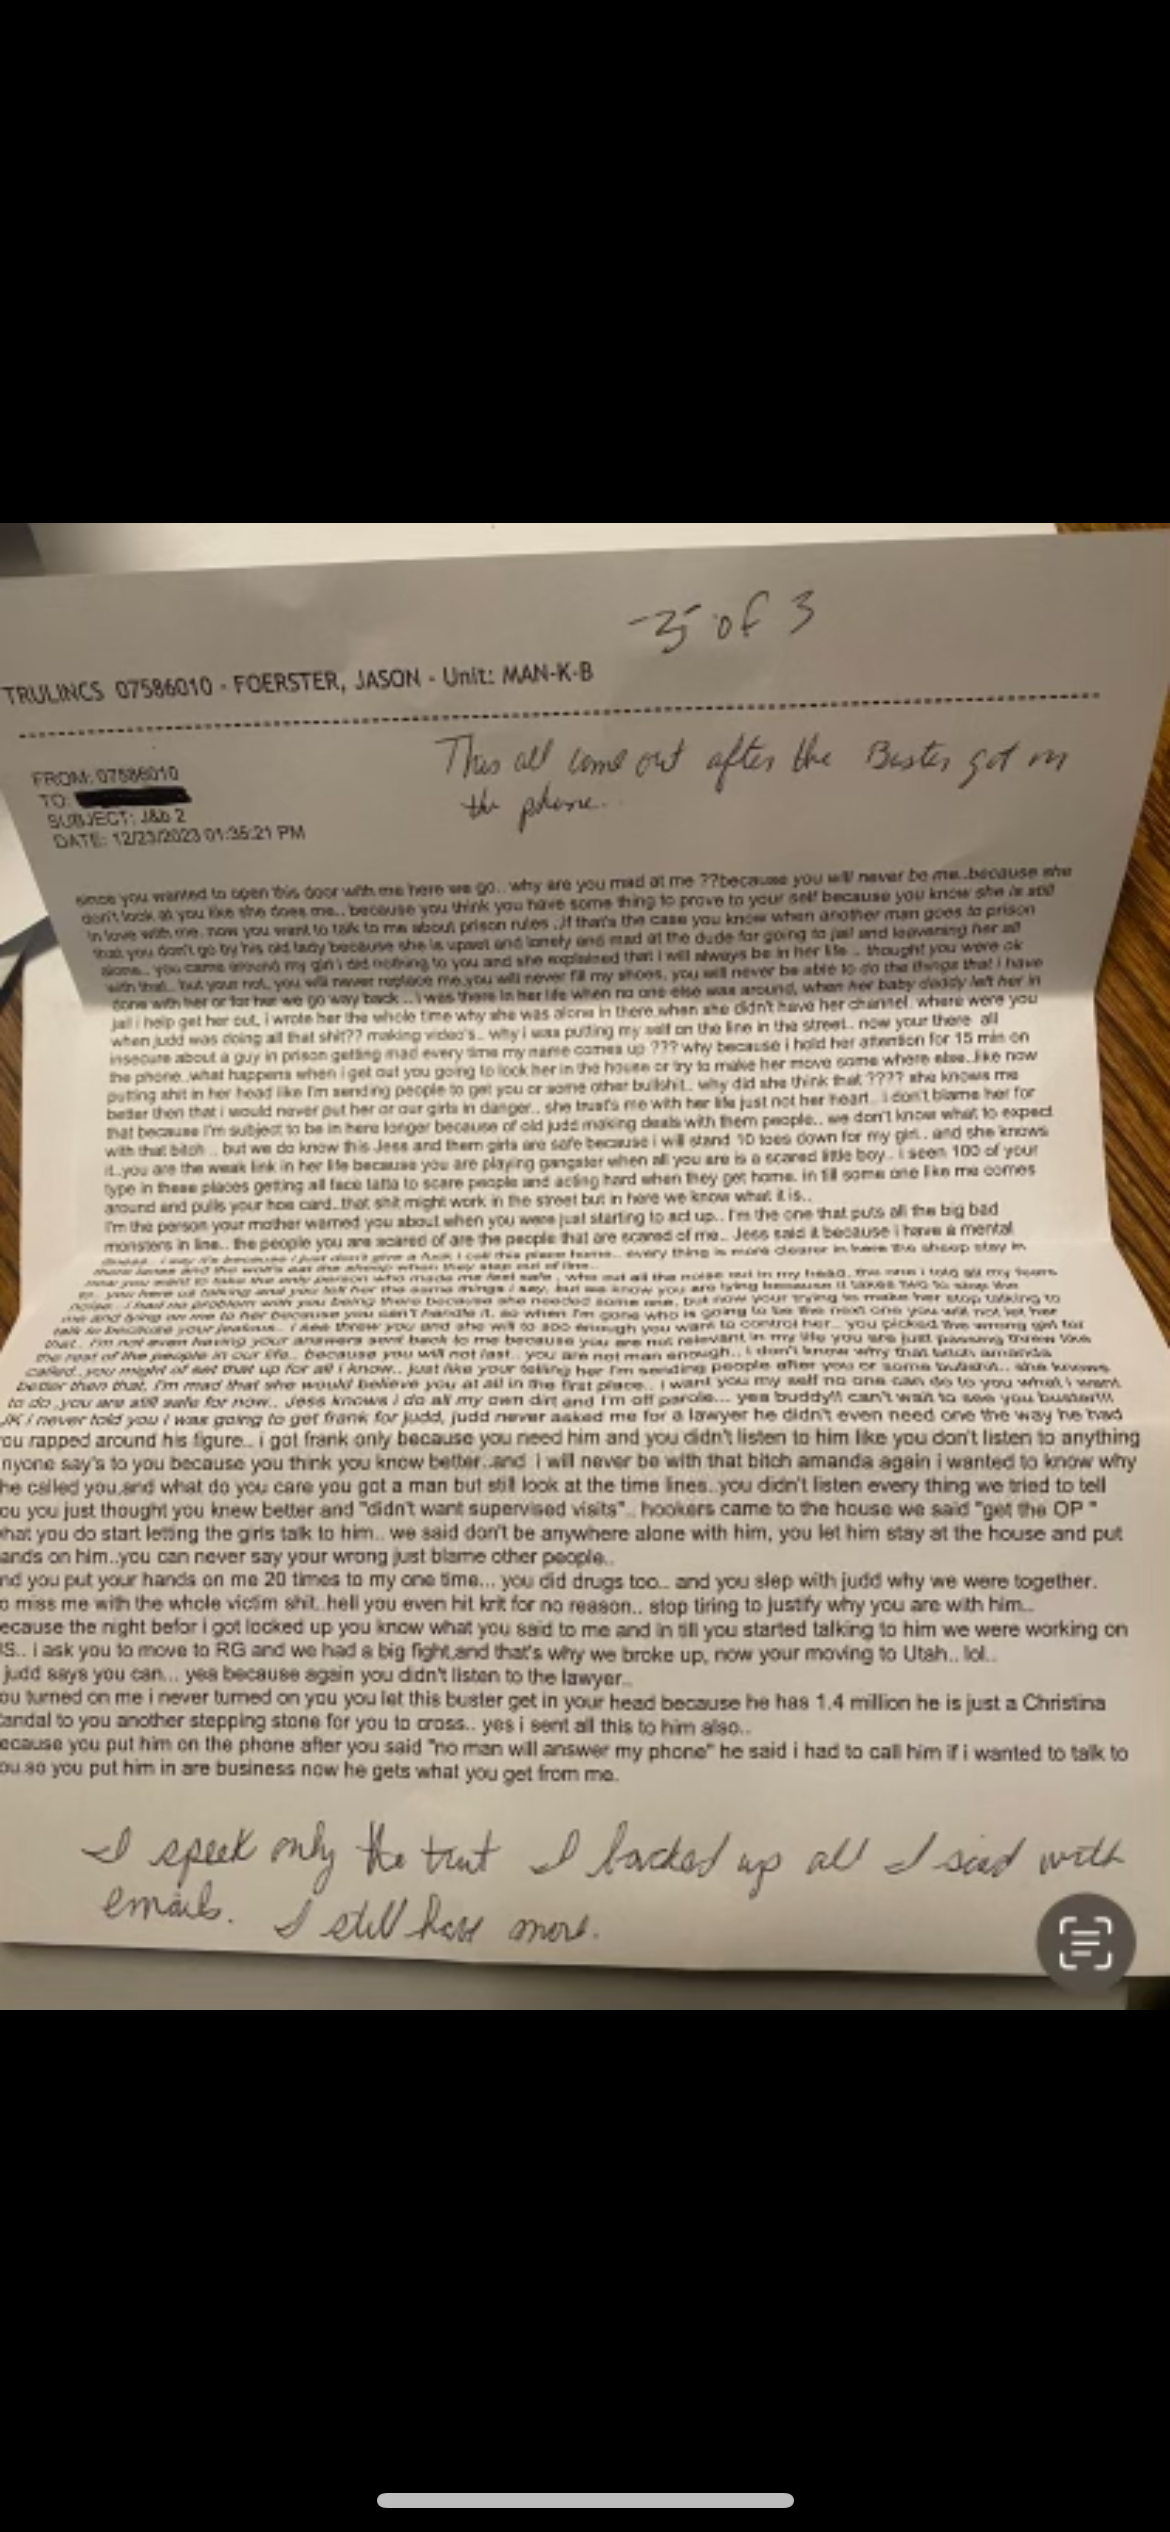 3 of 3
TRULINCS 07586010 - FOERSTER, JASON - Unit: MAN-K-B
FROM: 07586010
TO:
SUBJECT: J&b 2
DATE: 12/23/2023 01:35:21 PM
This all come out after the Buster got on
the phone..
since you wanted to open this door with me here we go.. why are you mad at me ??because you will never be me..because she
don't look at you like she does me.. because you think you have some thing to prove to your self because you know she is still
in love with me. now you want to talk to me about prison rules ..if that's the case you know when another man goes to prison
that you don't go by his old lady because she is upset and lonely and mad at the dude for going to jail and leavening her all
alone.. you came around my girl i did nothing to you and she explained that i will always be in her life .. thought you were ok
with that.. but your not, you will never replace me,you will never fill my shoes, you will never be able to do the things that i have
done with her or for her we go way back .. i was there in her life when no one else was around, when her baby daddy left her in
jail i help get her out, i wrote her the whole time why she was alone in there,when she didn't have her channel, where were you
when judd was doing all that shit?? making video's.. why i was putting my self on the line in the street.. now your there all
insecure about a guy in prison getting mad every time my name comes up ??? why because i hold her attention for 15 min on
the phone..what happens when i get out you going to lock her in the house or try to make her move some where else..like now
putting shit in her head like I'm sending people to get you or some other bullshit.. why did she think that ???? she knows me
better then that i would never put her or our girls in danger.. she trust's me with her life just not her heart.. i don't blame her for
that because I'm subject to be in here longer because of old judd making deals with them people.. we don't know what to expect
with that bitch .. but we do know this Jess and them girls are safe because i will stand 10 toes down for my girl.. and she knows
it..you are the weak link in her life because you are playing gangster when all you are is a scared little boy.. i seen 100 of your
type in these places getting all face tatta to scare people and acting hard when they get home. in till some one like me comes
around and pulls your hoe card..that shit might work in the street but in here we know what it is..
I'm the person your mother warned you about when you were just starting to act up.. I'm the one that puts all the big bad
monsters in line.. the people you are scared of are the people that are scared of me.. Jess said it because i have a mental
illness.. i say it's because i just don't give a fuck i call this place home.. every thing is more clearer in here the sheep stay in
there lanes and the wolf's eat the sheep when they step out of line..
now you want to take the only person who made me feel safe , who cut all the noise out in my head, the one i told all my fears
to.. you here us talking and you tell her the same things i say, but we know you are lying because it takes two to stop the
noise.. i had no problem with you being there because she needed some one, but now your trying to make her stop talking to
me and lying on me to her because you can't handle it. so when I'm gone who is going to be the next one you will not let her
talk to because your jealous.. i see threw you and she will to soo enough you want to control her.. you picked the wrong girl for
that.. I'm not even having your answers sent back to me because you are not relevant in my life you are just passing threw like
the rest of the people in our life.. because you will not last.. you are not man enough.. i don't know why that bitch amanda
called..you might of set that up for all i know.. just like your telling her I'm sending people after you or some bullshit.. she knows
better then that, I'm mad that she would believe you at all in the first place.. i want you my self no one can do to you what i want
to do..you are still safe for now.. Jess knows i do all my own dirt and I'm off parole... yea buddy!! can't wait to see you buster!!!!
JK i never told you i was going to get frank for judd, judd never asked me for a lawyer he didn't even need one the way he had
ou rapped around his figure.. i got frank only because you need him and you didn't listen to him like you don't listen to anything
nyone say's to you because you think you know better..and i will never be with that bitch amanda again i wanted to know why
he called you,and what do you care you got a man but still look at the time lines..you didn't listen every thing we tried to tell
ou you just thought you knew better and "didn't want supervised visits".. hookers came to the house we said "get the OP "
hat you do start letting the girls talk to him.. we said don't be anywhere alone with him, you let him stay at the house and put
ands on him..you can never say your wrong just blame other people..
nd you put your hands on me 20 times to my one time... you did drugs too.. and you slep with judd why we were together.
o miss me with the whole victim shit..hell you even hit krit for no reason.. stop tiring to justify why you are with him..
ecause the night befor i got locked up you know what you said to me and in till you started talking to him we were working on
S.. i ask you to move to RG and we had a big fight,and that's why we broke up, now your moving to Utah.. lol..
judd says you can... yea because again you didn't listen to the lawyer..
ou turned on me i never turned on you you let this buster get in your head because he has 1.4 million he is just a Christina
andal to you another stepping stone for you to cross.. yes i sent all this to him also..
ecause you put him on the phone after you said "no man will answer my phone" he said i had to call him if i wanted to talk to
ou.so you put him in are business now he gets what you get from me.
I speek only the trut I backed up all I said with
emails. I still have more.